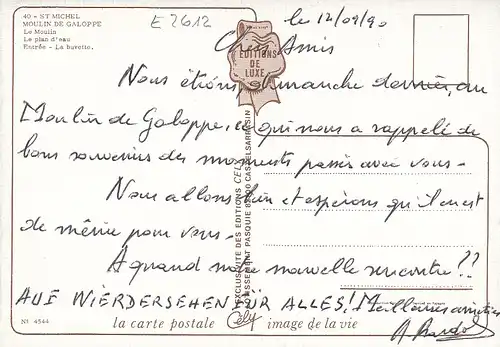 40 - ST MICHEL
MOULIN DE GALOPPE
Le Moulin
Le plan d'eau
Entrée - La buvette.
E 2612
le 12/09/90
Chers Amis
EDITIONS
DE
LUXE
Nous étions dimanche dernier, au
Moulin de Galoppe, ce qui nous a rappelé de
bons souvenirs des moments passés avec vous -
Nous allons bien et espérons qu'il en est
de même pour vous -
A quand notre nouvelle rencontre!??
AUF WIERDERSEHEN FÜR ALLES! Meilleures amitiés
EXCLUSIVITÉ DES EDITIONS CELY
LOTISSEMENT PASQUIE 82100 CASTELSARRASIN
N1 4544
la carte postale Cély image de la vie